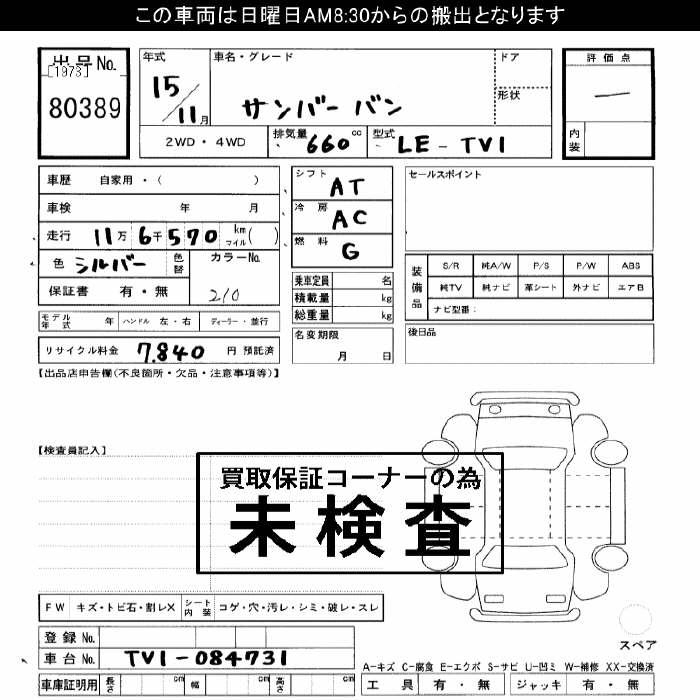 この車両は日曜日AM8:30からの搬出となります
出品No. 年式 車名・グレード ドア 評価点
[1973]
80389 15/11月 サンバー バン 形状 ―
内装
2WD・4WD 排気量 660cc 型式 LE-TV1
車歴 自家用・( ) シフト AT セールスポイント
車検 年 月 冷房 AC
走行 11万6千570 km マイル( ) 燃料 G
色 シルバー 色替 カラーNo. 210
保証書 有・無
装備品 S/R 純A/W P/S P/W ABS
純TV 純ナビ 革シート 外ナビ エアB
ナビ型番:
乗車定員 名
積載量 kg
総重量 kg
モデル年式 年 ハンドル 左・右 ディーラー・並行
名変期限 月 日
後日品
リサイクル料金 7,840 円 預託済
【出品店申告欄(不良箇所・欠品・注意事項等)】
【検査員記入】
買取保証コーナーの為
未検査
FW キズ・トビ石・割レX シート内装 コゲ・穴・汚レ・シミ・破レ・スレ
登録No.
車台No. TV1-084731
スペア
A-キズ C-腐食 E-エクボ S-サビ U-凹ミ W-補修 XX-交換済
車庫証明用 長さ cm 幅 cm 高さ cm 工具 有・無 ジャッキ 有・無